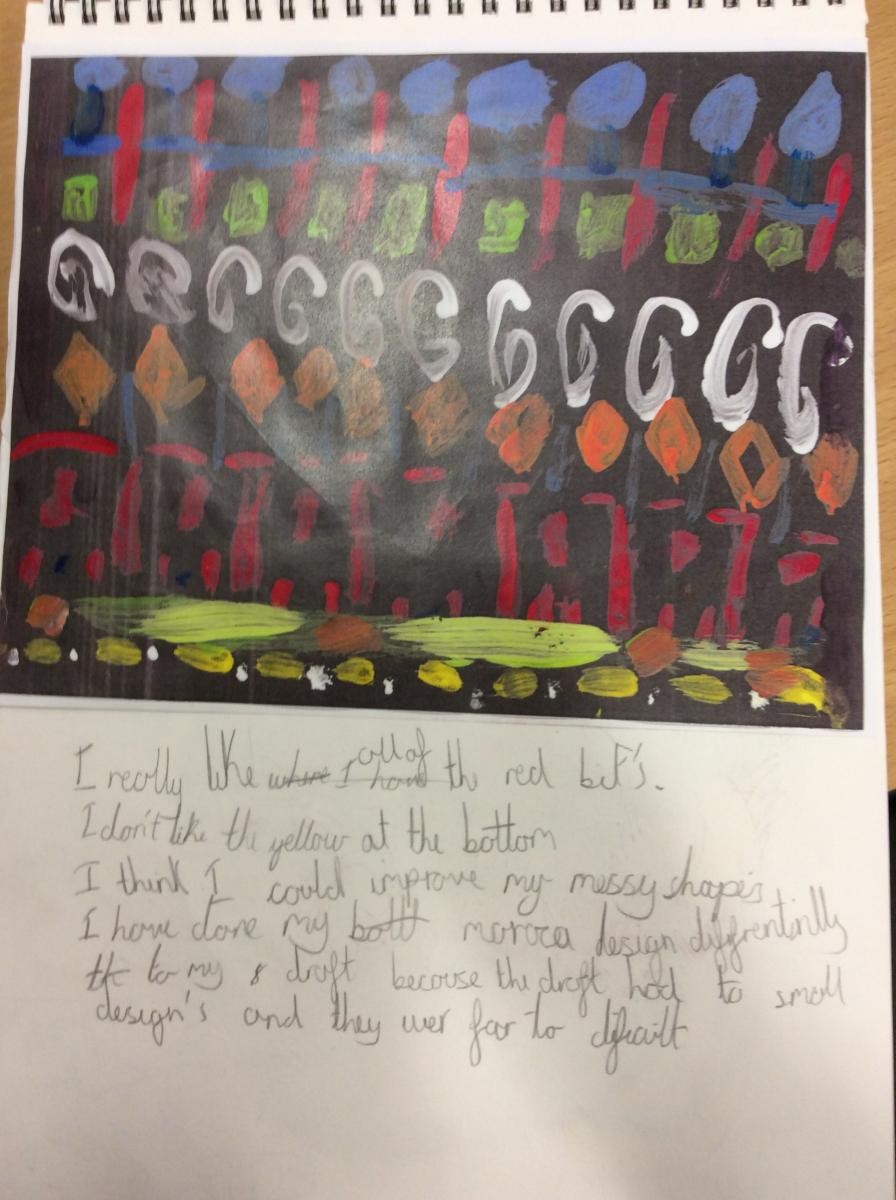 I really like where I have all of the red bit's.
I don't like the yellow at the bottom
I think I could improve my messy shapes
I have done my maraca design differentinlly
to my draft because the draft had to small
design's and they wer far to dificailt